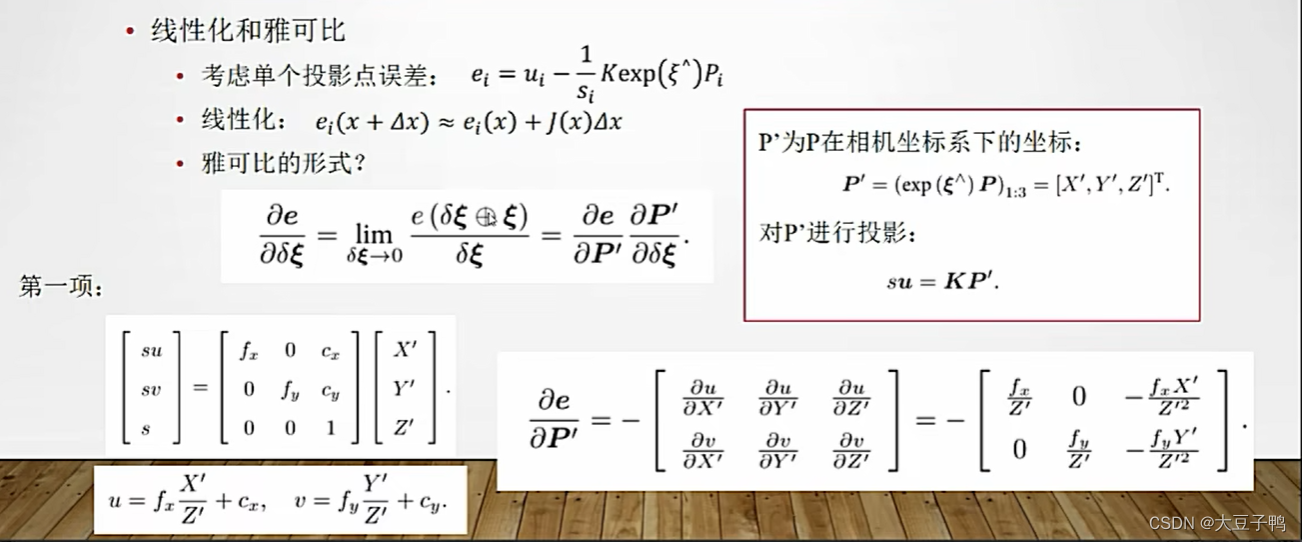 • 线性化和雅可比
• 考虑单个投影点误差： e_i = u_i − \frac{1}{s_i} K exp(ξ^∧) P_i
• 线性化： e_i(x + Δx) ≈ e_i(x) + J(x)Δx
• 雅可比的形式？
\frac{∂e}{∂δξ} = \lim_{δξ→0} \frac{e(δξ ⊕ ξ)}{δξ} = \frac{∂e}{∂P'} \frac{∂P'}{∂δξ}.
P’为P在相机坐标系下的坐标：
P' = (exp(ξ^∧) P)_{1:3} = [X', Y', Z']^T.
对P’进行投影：
su = KP'.
第一项：
\begin{bmatrix} su \\ sv \\ s \end{bmatrix} = \begin{bmatrix} f_x & 0 & c_x \\ 0 & f_y & c_y \\ 0 & 0 & 1 \end{bmatrix} \begin{bmatrix} X' \\ Y' \\ Z' \end{bmatrix}.
u = f_x \frac{X'}{Z'} + c_x, v = f_y \frac{Y'}{Z'} + c_y.
\frac{∂e}{∂P'} = − \begin{bmatrix} \frac{∂u}{∂X'} & \frac{∂u}{∂Y'} & \frac{∂u}{∂Z'} \\ \frac{∂v}{∂X'} & \frac{∂v}{∂Y'} & \frac{∂v}{∂Z'} \end{bmatrix} = − \begin{bmatrix} \frac{f_x}{Z'} & 0 & −\frac{f_x X'}{Z'^2} \\ 0 & \frac{f_y}{Z'} & −\frac{f_y Y'}{Z'^2} \end{bmatrix}.
CSDN @大豆子鸭